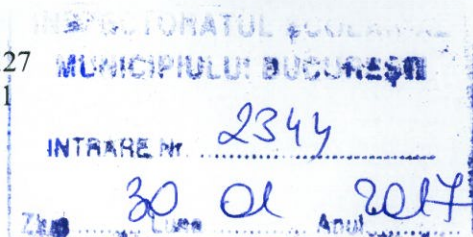 INSPECTORATUL ȘCOLAR AL
27 MUNICIPIULUI BUCUREȘTI
1
INTRARE Nr. 2344
Ziua 30 Luna 01 Anul 2017